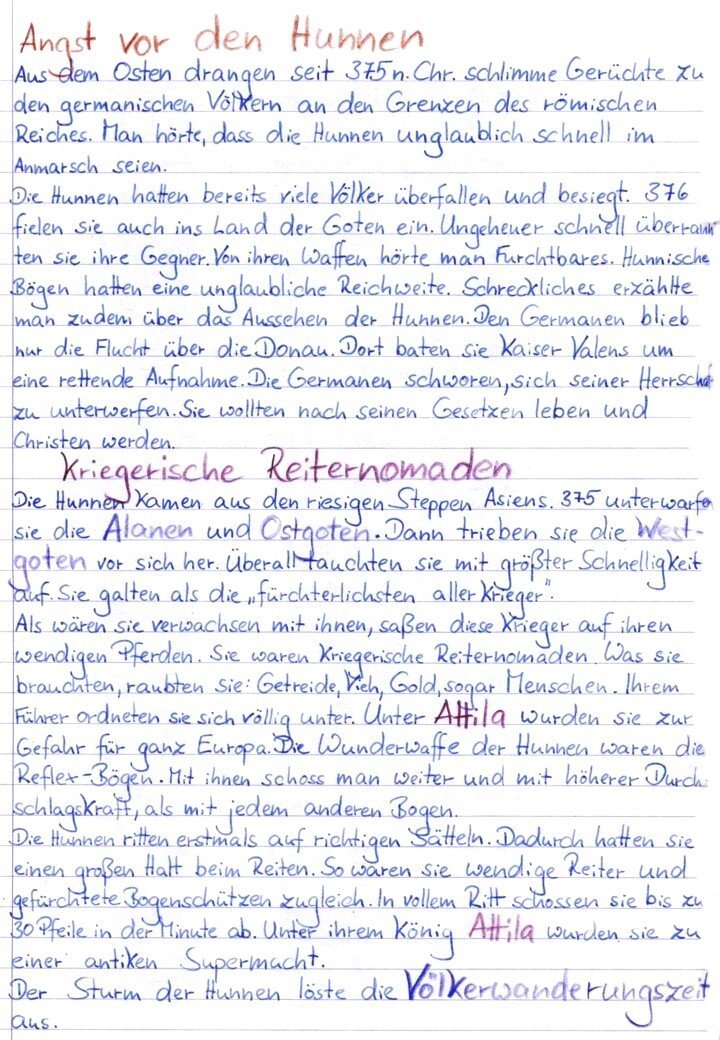 Angst vor den Hunnen
Aus dem Osten drangen seit 375 n. Chr. schlimme Gerüchte zu
den germanischen Völkern an den Grenzen des römischen
Reiches. Man hörte, dass die Hunnen unglaublich schnell im
Anmarsch seien.
Die Hunnen hatten bereits viele Völker überfallen und besiegt. 376
fielen sie auch ins Land der Goten ein. Ungeheuer schnell überrann
ten sie ihre Gegner. Von ihren Waffen hörte man Furchtbares. Hunnische
Bögen hatten eine unglaubliche Reichweite. Schreckliches erzählte
man zudem über das Aussehen der Hunnen. Den Germanen blieb
nur die Flucht über die Donau. Dort baten sie Kaiser Valens um
eine rettende Aufnahme. Die Germanen schworen, sich seiner Herrschaft
zu unterwerfen. Sie wollten nach seinen Gesetzen leben und
Christen werden.
Kriegerische Reiternomaden
Die Hunnen kamen aus den riesigen Steppen Asiens. 375 unterwarfen
sie die Alanen und Ostgoten. Dann trieben sie die West-
goten vor sich her. Überall tauchten sie mit größter Schnelligkeit
auf. Sie galten als die „fürchterlichsten aller Krieger".
Als wären sie verwachsen mit ihnen, saßen diese Krieger auf ihren
wendigen Pferden. Sie waren kriegerische Reiternomaden. Was sie
brauchten, raubten sie: Getreide, Vieh, Gold, sogar Menschen. Ihrem
Führer ordneten sie sich völlig unter. Unter Attila wurden sie zur
Gefahr für ganz Europa. Die Wunderwaffe der Hunnen waren die
Reflex-Bögen. Mit ihnen schoss man weiter und mit höherer Durch-
schlagskraft, als mit jedem anderen Bogen.
Die Hunnen ritten erstmals auf richtigen Sätteln. Dadurch hatten sie
einen großen Halt beim Reiten. So waren sie wendige Reiter und
gefürchtete Bogenschützen zugleich. In vollem Ritt schossen sie bis zu
30 Pfeile in der Minute ab. Unter ihrem König Attila wurden sie zu
einer antiken Supermacht.
Der Sturm der Hunnen löste die Völkerwanderungszeit
aus.